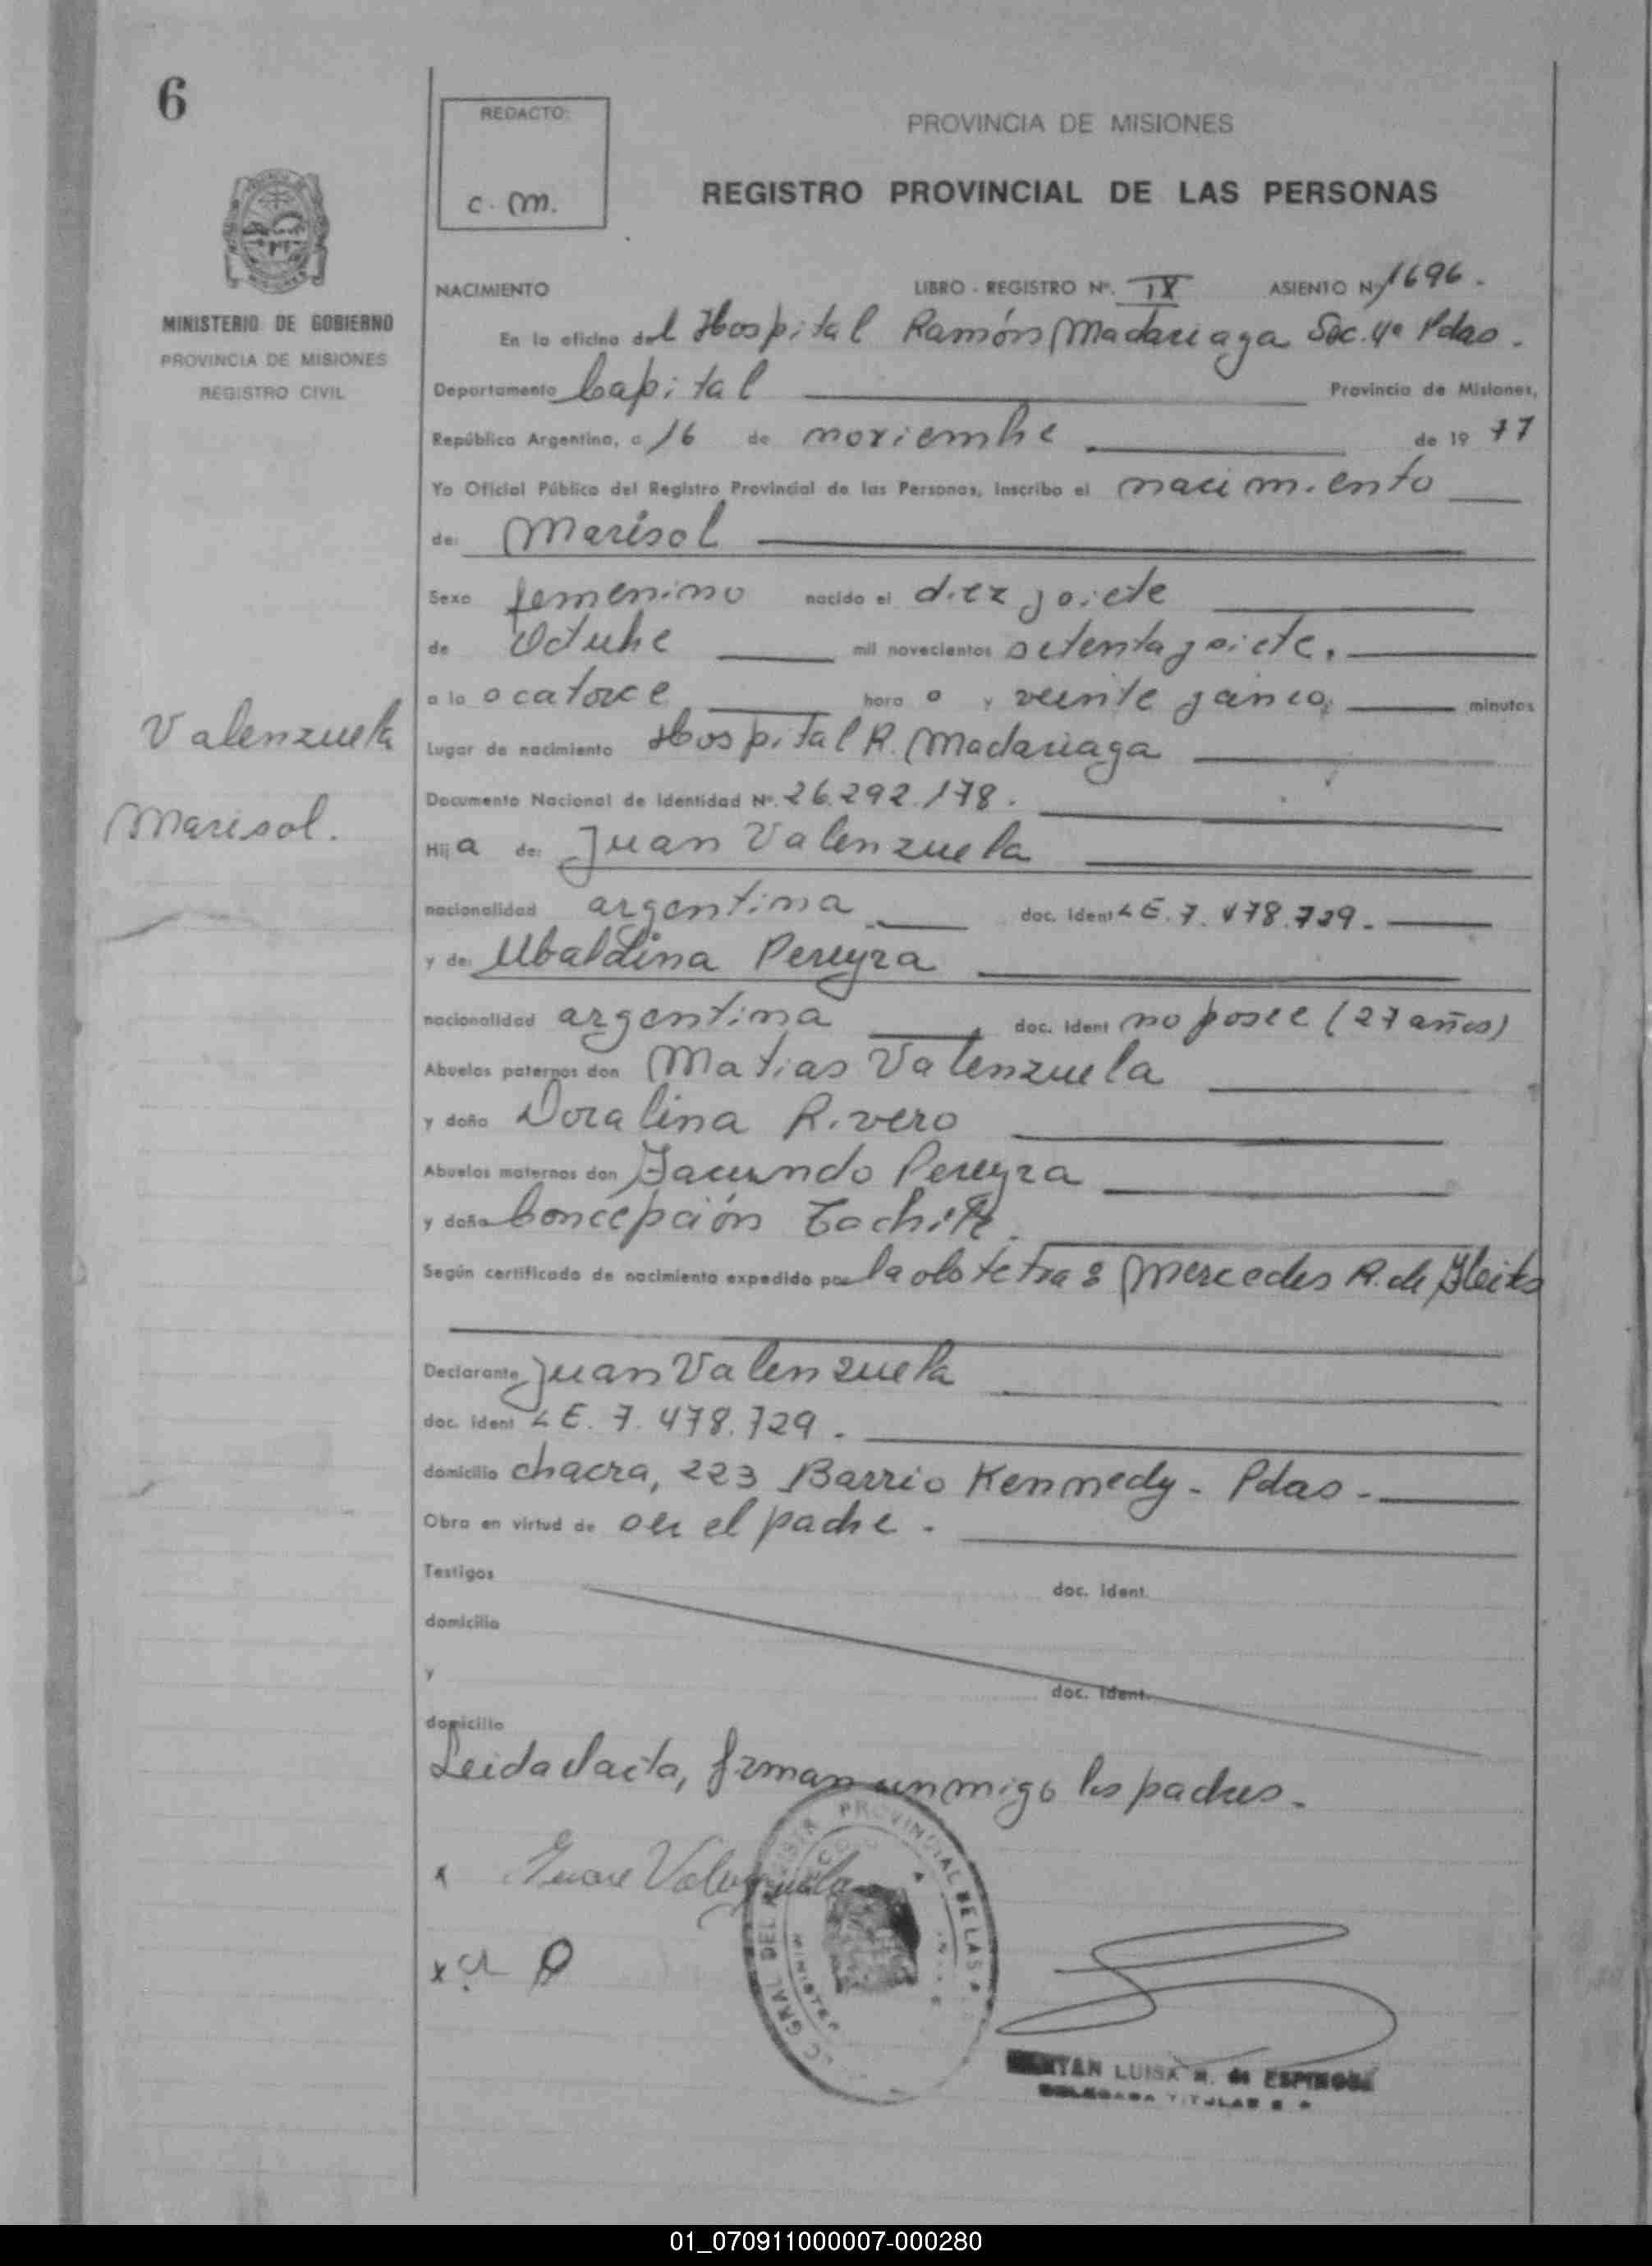 6
REDACTO:
c. m.
PROVINCIA DE MISIONES
REGISTRO PROVINCIAL DE LAS PERSONAS
MINISTERIO DE GOBIERNO
PROVINCIA DE MISIONES
REGISTRO CIVIL
NACIMIENTO LIBRO - REGISTRO Nº. IX ASIENTO Nº 1696.
En la oficina del Hospital Ramón Madariaga Sec. 4ª Pdas.
Departamento Capital Provincia de Misiones,
República Argentina, a 16 de noviembre de 1977
Yo Oficial Público del Registro Provincial de las Personas, inscribo el nacimiento
de: Marisol
Sexo femenino nacido el diez y siete
de Octubre mil novecientos setenta y siete.
a la s catorce hora s y veinte y cinco minutos
Valenzuela
Marisol.
Lugar de nacimiento Hospital R. Madariaga
Documento Nacional de Identidad Nº. 26.292.178.
Hij a de: Juan Valenzuela
nacionalidad argentina doc. ident L E. 7.478.729.
y de: Ubaldina Pereyra
nacionalidad argentina doc. ident no posee (27 años)
Abuelos paternos don Matias Valenzuela
y doña Doralina Rivero
Abuelos maternos don Facundo Pereyra
y doña Concepción
Según certificado de nacimiento expedido por la obstetra: Mercedes R. de Fleitas
Declarante Juan Valenzuela
doc. ident L E. 7.478.729.
domicilio chacra, 223 Barrio Kennedy - Pdas.
Obra en virtud de ser el padre.
Testigos doc. ident.
domicilio
y doc. ident.
domicilio
Leida el acta, firman conmigo los padres.
x Juan Valenzuela
x
PROVINCIAL DE LAS
GRAL DEL
LUISA R. de ESPINOSA
DELEGADA TITULAR
01_070911000007-000280